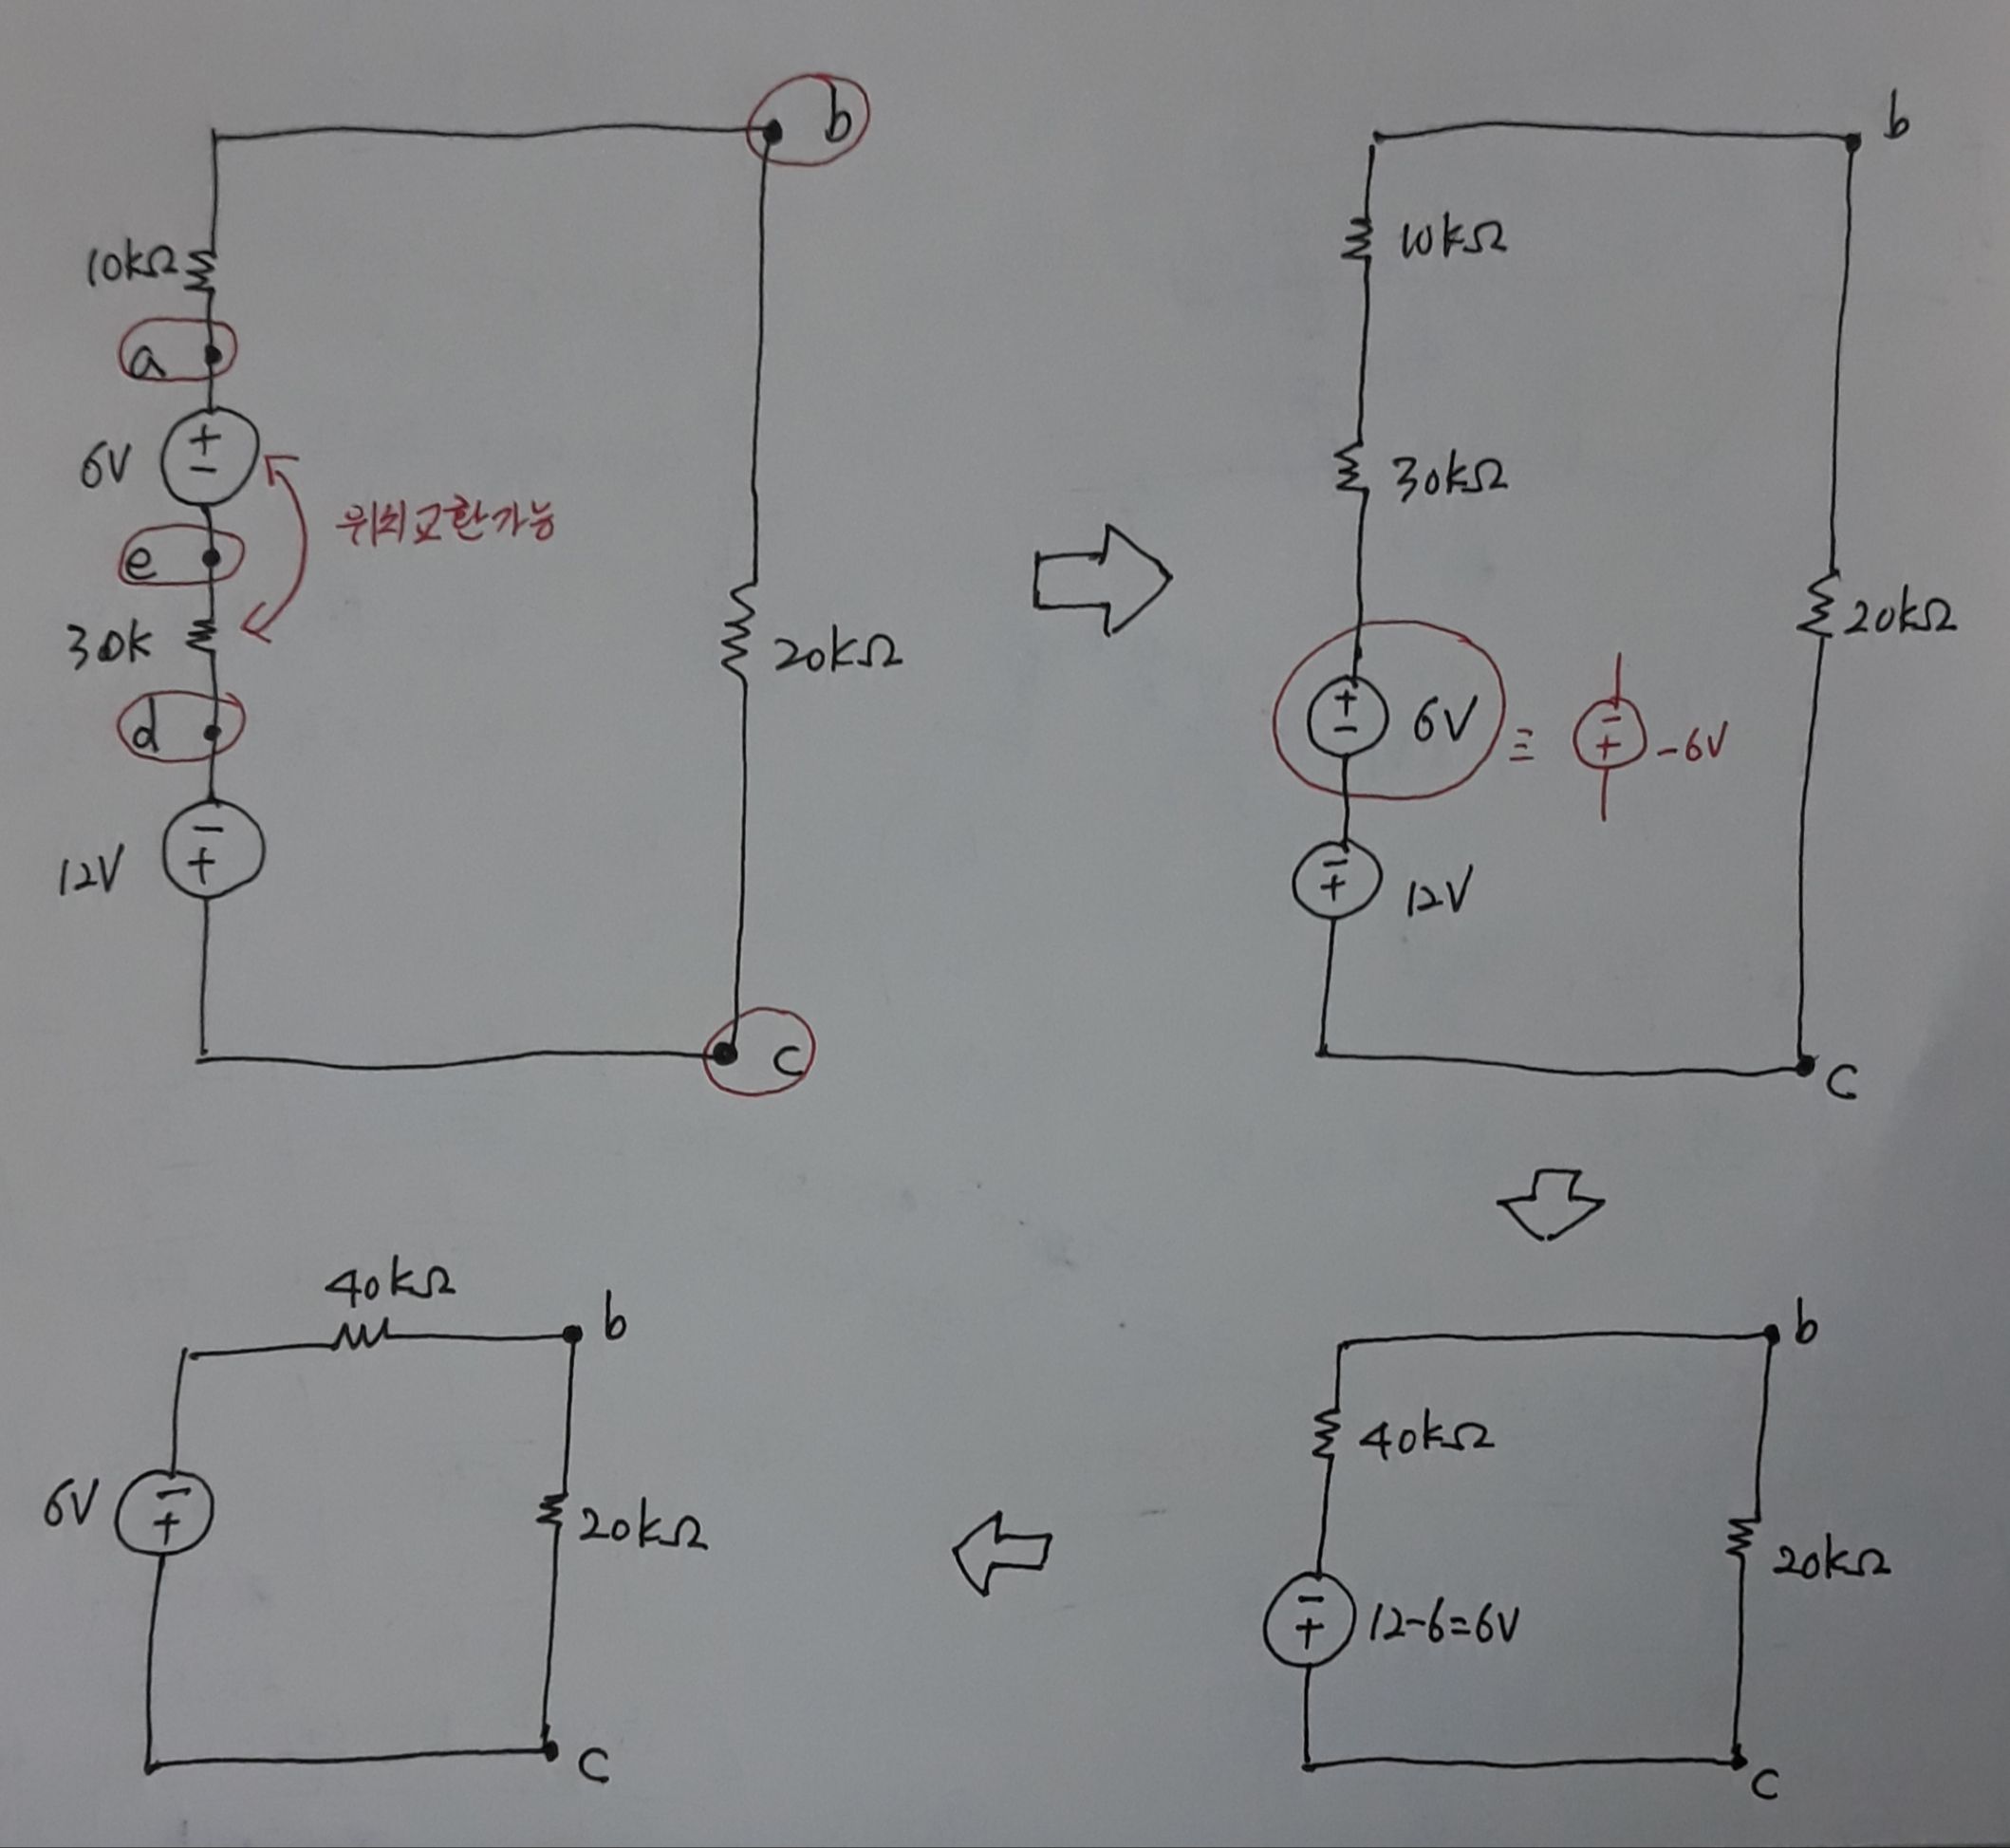 b
10kΩ
a
6V
+
−
위치교환가능
e
30k
d
20kΩ
12V
−
+
c
b
10kΩ
30kΩ
20kΩ
+
−
6V
≡
−
+
-6V
−
+
12V
c
40kΩ
b
6V
−
+
20kΩ
c
b
40kΩ
20kΩ
−
+
12-6=6V
c